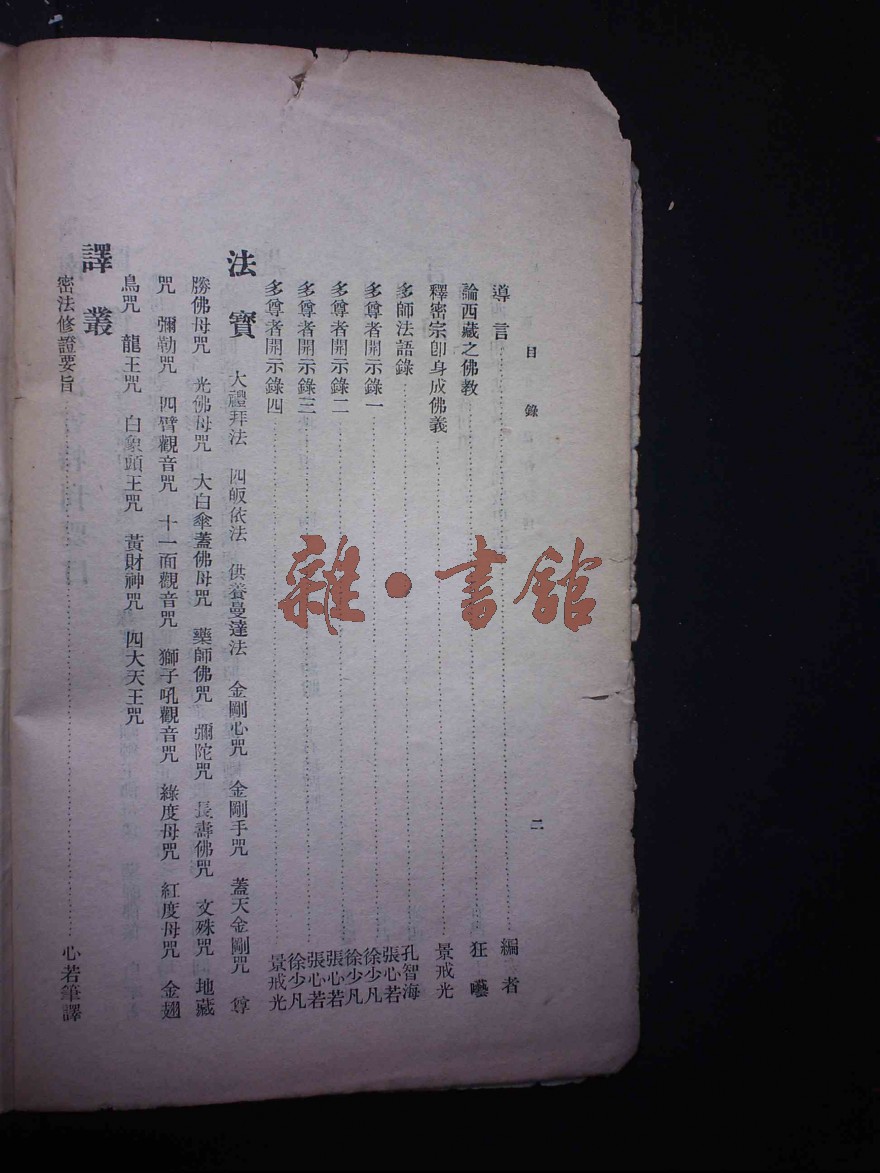 目錄 二
導言 編者
論西藏之佛教 狂囈
釋密宗卽身成佛義 景戒光
多師法語錄 孔智海
多尊者開示錄一 張心若 徐少凡
多尊者開示錄二 徐少凡 張心若
多尊者開示錄三 張心若 徐少凡
多尊者開示錄四 景戒光
法寶 大禮拜法 四皈依法 供養曼達法 金剛心咒 金剛手咒 蓋天金剛咒 尊
勝佛母咒 光佛母咒 大白傘蓋佛母咒 藥師佛咒 彌陀咒 長壽佛咒 文殊咒 地藏
咒 彌勒咒 四臂觀音咒 十一面觀音咒 獅子吼觀音咒 綠度母咒 紅度母咒 金翅
鳥咒 龍王咒 白象頭王咒 黃財神咒 四大天王咒
譯叢
密法修證要旨 心若筆譯
雜·書館